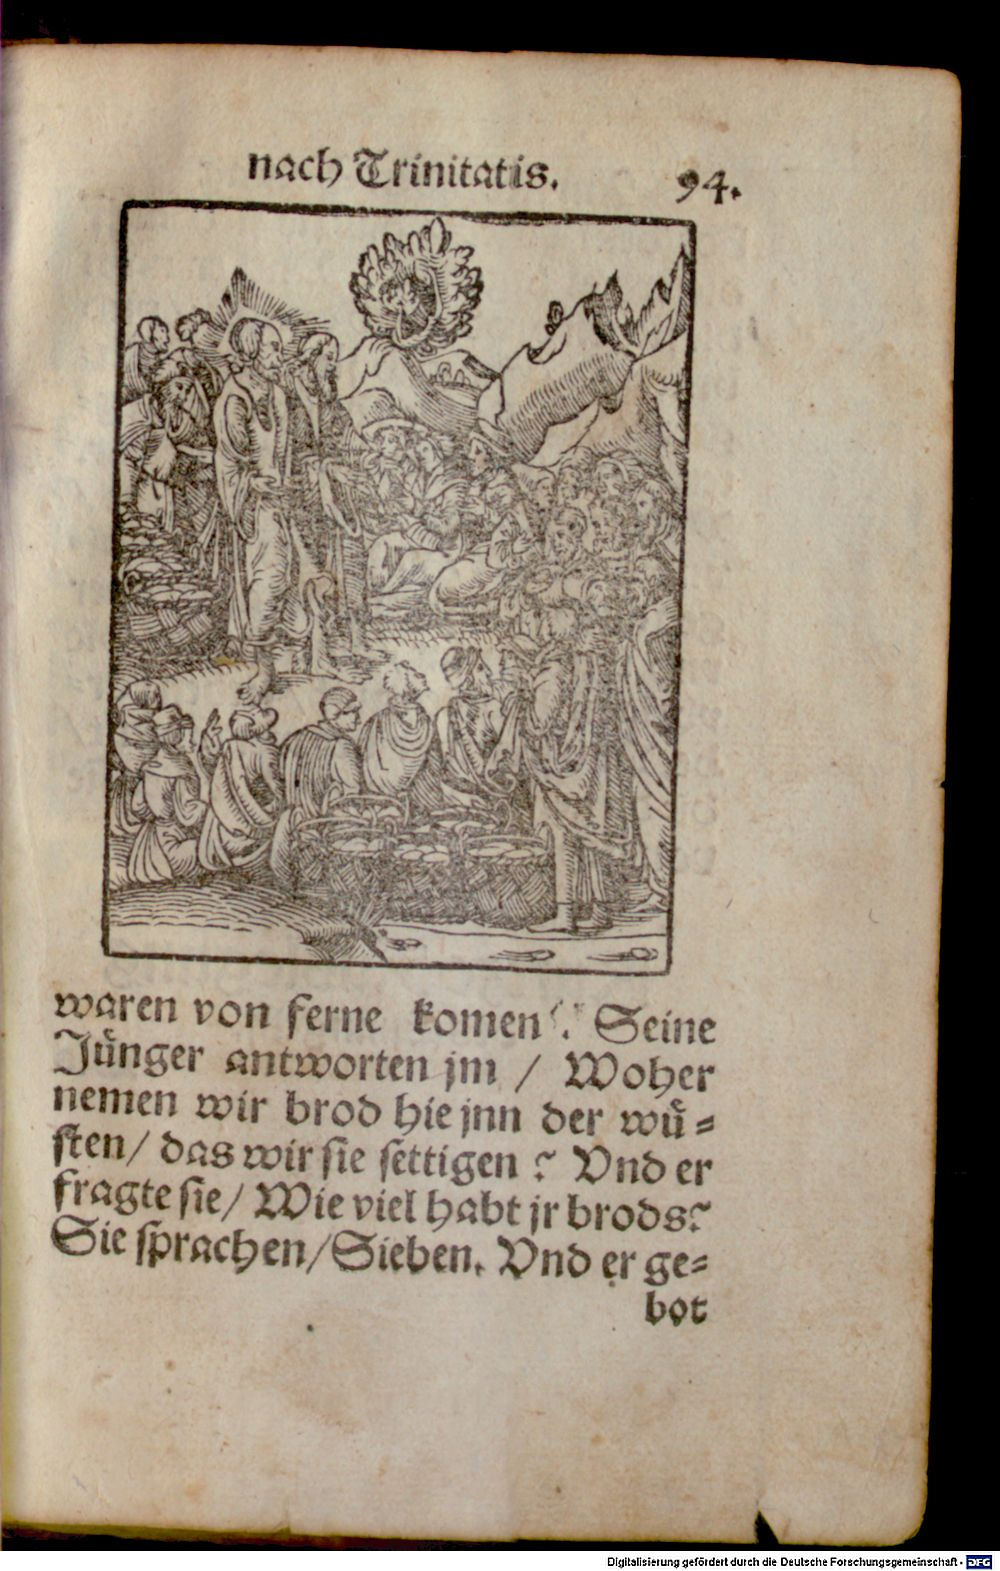 nach Trinitatis. 94.
waren von ferne komen? Seine
Jünger antworten jm / Woher
nemen wir brod hie jnn der wü-
sten / das wir sie settigen? Vnd er
fragte sie / Wie viel habt jr brods?
Sie sprachen / Sieben. Vnd er ge-
bot
Digitalisierung gefördert durch die Deutsche Forschungsgemeinschaft - DFG